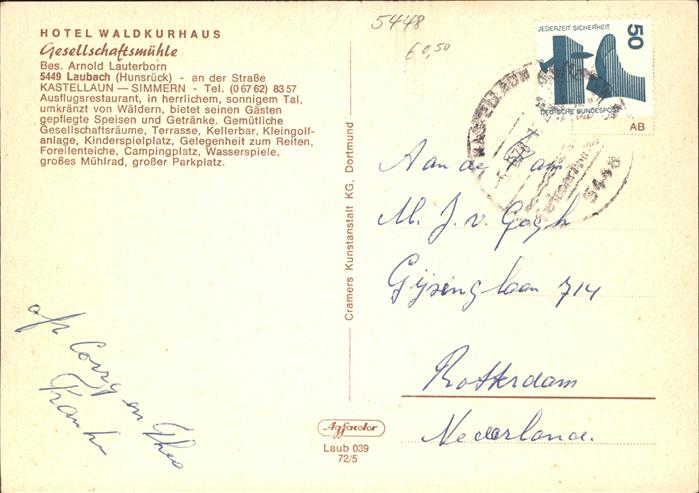 HOTEL WALDKURHAUS
Gesellschaftsmühle
Bes. Arnold Lauterborn
5449 Laubach (Hunsrück) - an der Straße
KASTELLAUN — SIMMERN - Tel. (0 67 62) 83 57
Ausflugsrestaurant, in herrlichem, sonnigem Tal,
umkränzt von Wäldern, bietet seinen Gästen
gepflegte Speisen und Getränke. Gemütliche
Gesellschaftsräume, Terrasse, Kellerbar, Kleingolf-
anlage, Kinderspielplatz, Gelegenheit zum Reiten,
Forellenteiche, Campingplatz, Wasserspiele,
großes Mühlrad, großer Parkplatz.
afz Corry en Theo
Frank
Cramers Kunstanstalt KG, Dortmund
Agfacolor
Laub 039
72/5
5448
€ 0,50
JEDERZEIT SICHERHEIT
50
DEUTSCHE BUNDESPOST
AB
5448
Aan de fam
M. J. v. Gogh
Gijsinglaan 714
Rotterdam
Nederland.